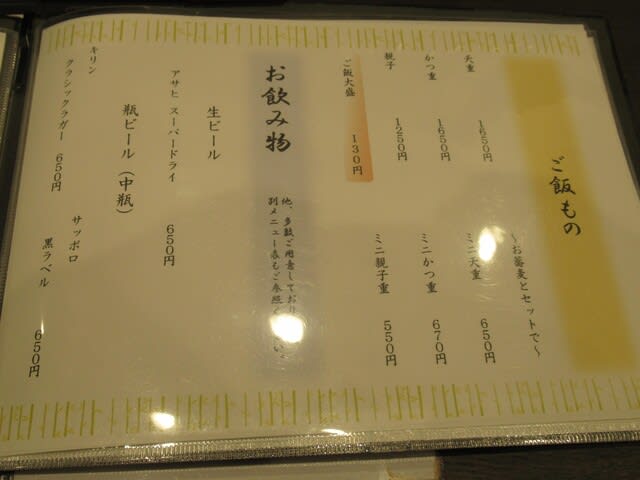 ご飯もの
天重 1650円
かつ重 1650円
親子 1250円
ご飯大盛 130円
～お蕎麦とセットで～
ミニ天重 650円
ミニかつ重 670円
ミニ親子重 550円
お飲み物
他、多数ご用意しており
別メニュー表もご参照く
生ビール
アサヒ スーパードライ 650円
瓶ビール(中瓶)
キリン
クラシックラガー 650円
サッポロ
黒ラベル 650円